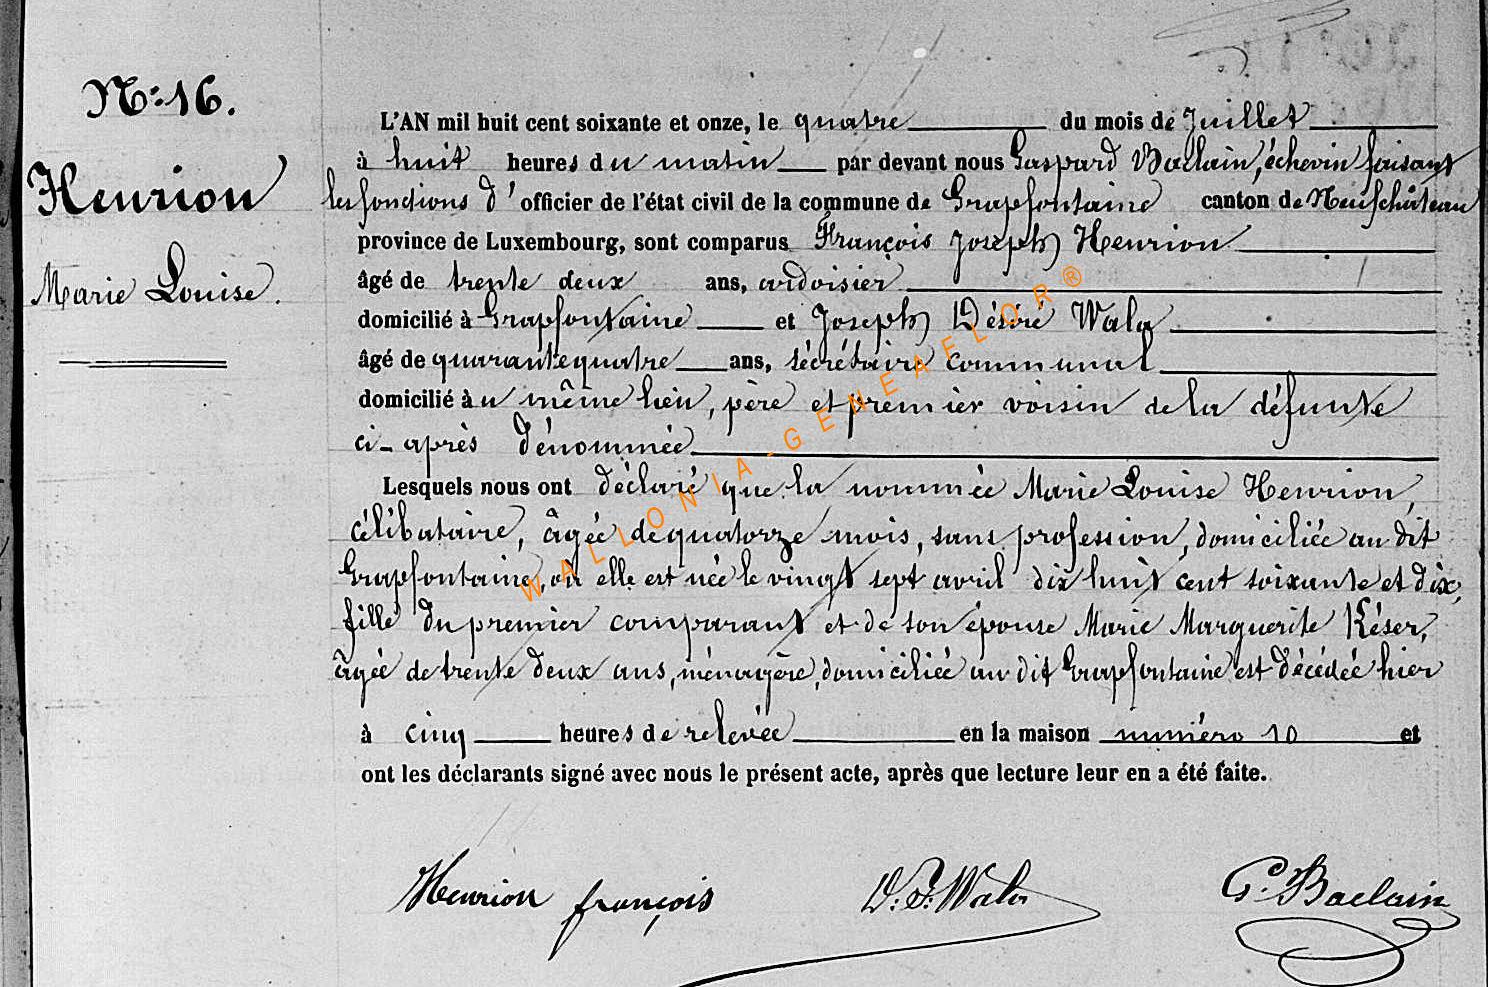 N° 16.
Henrion
Marie Louise.
L'AN mil huit cent soixante et onze, le quatre du mois de Juillet
à huit heures du matin par devant nous Gaspard Baclain, échevin faisant
les fonctions d'officier de l'état civil de la commune de Grapfontaine canton de Neufchâteau
province de Luxembourg, sont comparus François Joseph Henrion
âgé de trente deux ans, ardoisier
domicilié à Grapfontaine et Joseph Désiré Wala
âgé de quarante quatre ans, sécrétaire communal
domicilié au même lieu, père et premier voisin de la défunte
ci-après dénommée
Lesquels nous ont déclaré que la nommée Marie Louise Henrion,
célibataire, âgée de quatorze mois, sans profession, domiciliée au dit
Grapfontaine, où elle est née le vingt sept avril dix huit cent soixante et dix,
fille du premier comparant et de son épouse Marie Marguerite Késer,
âgée de trente deux ans, ménagère, domiciliée au dit Grapfontaine est décédée hier
à cinq heures de relevée en la maison numéro 10 et
ont les déclarants signé avec nous le présent acte, après que lecture leur en a été faite.
Henrion françois D. J. Wala G. Baclain
WALLONIA-GENEAFLOR®